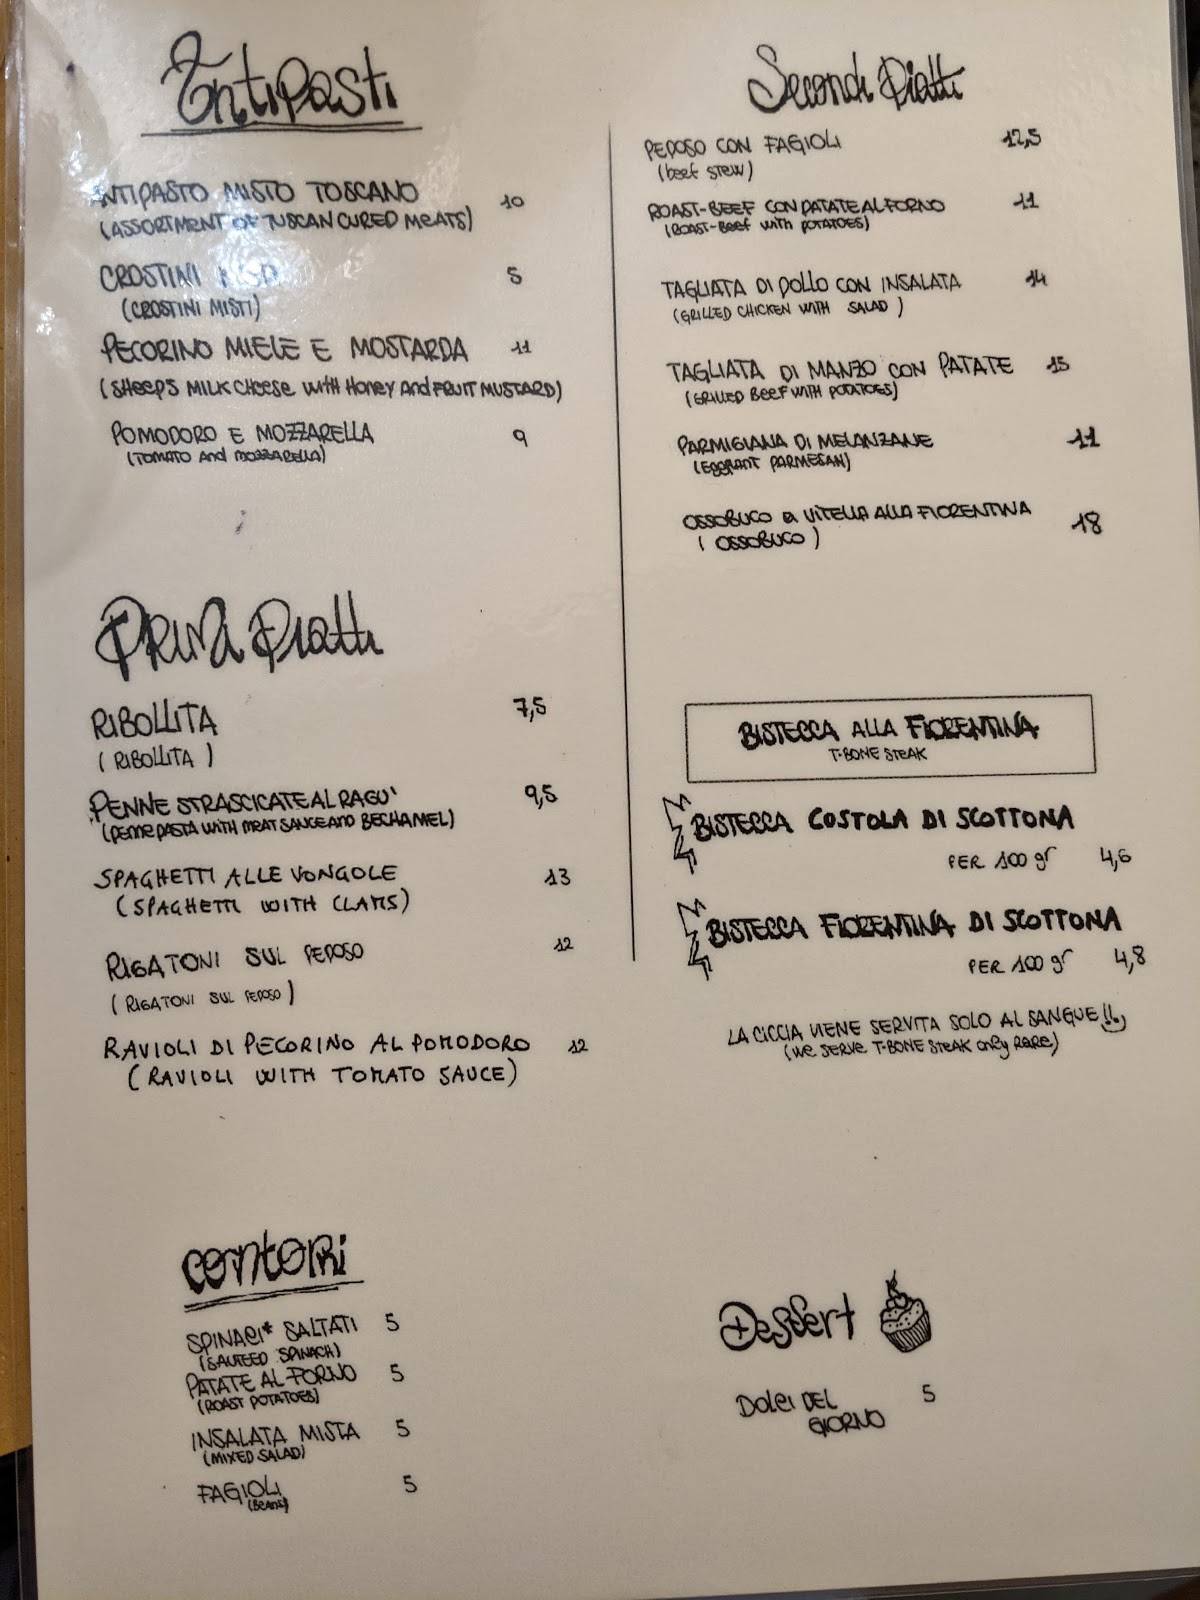 Antipasti
ANTIPASTO MISTO TOSCANO 10
(ASSORTMENT OF TUSCAN CURED MEATS)
CROSTINI 5
(CROSTINI MISTI)
PECORINO MIELE E MOSTARDA 11
(SHEEPS MILK CHEESE WITH HONEY AND FRUIT MUSTARD)
POMODORO E MOZZARELLA 9
(TOMATO AND MOZZARELLA)
Primi Piatti
RIBOLLITA 7,5
(RIBOLLITA)
PENNE STRASCICATE AL RAGU' 9,5
(PENNE PASTA WITH MEAT SAUCE AND BECHAMEL)
SPAGHETTI ALLE VONGOLE 13
(SPAGHETTI WITH CLAMS)
RIGATONI SUL PEPOSO 12
(RIGATONI SUL PEPOSO)
RAVIOLI DI PECORINO AL POMODORO 12
(RAVIOLI WITH TOMATO SAUCE)
contorni
SPINACI* SALTATI 5
(SAUTEED SPINACH)
PATATE AL FORNO 5
(ROAST POTATOES)
INSALATA MISTA 5
(MIXED SALAD)
FAGIOLI 5
(BEANS)
Secondi Piatti
PEPOSO CON FAGIOLI 12,5
(beef stew)
ROAST-BEEF CON PATATE AL FORNO 11
(ROAST-Beef WITH POTATOES)
TAGLIATA DI POLLO CON INSALATA 14
(GRILLED CHICKEN WITH SALAD)
TAGLIATA DI MANZO CON PATATE 15
(GRILLED BEEF WITH POTATOES)
PARMIGIANA DI MELANZANE 11
(EGGPLANT PARMESAN)
OSSOBUCO DI VITELLA ALLA FIORENTINA 18
(OSSOBUCO)
BISTECCA ALLA FIORENTINA
T-BONE STEAK
BISTECCA COSTOLA DI SCOTTONA
PER 100 gr 4,6
BISTECCA FIORENTINA DI SCOTTONA
PER 100 gr 4,8
LA CICCIA VIENE SERVITA SOLO AL SANGUE!!
(WE SERVE T-BONE STEAK ONLY RARE)
Dessert
DOLCI DEL 5
GIORNO